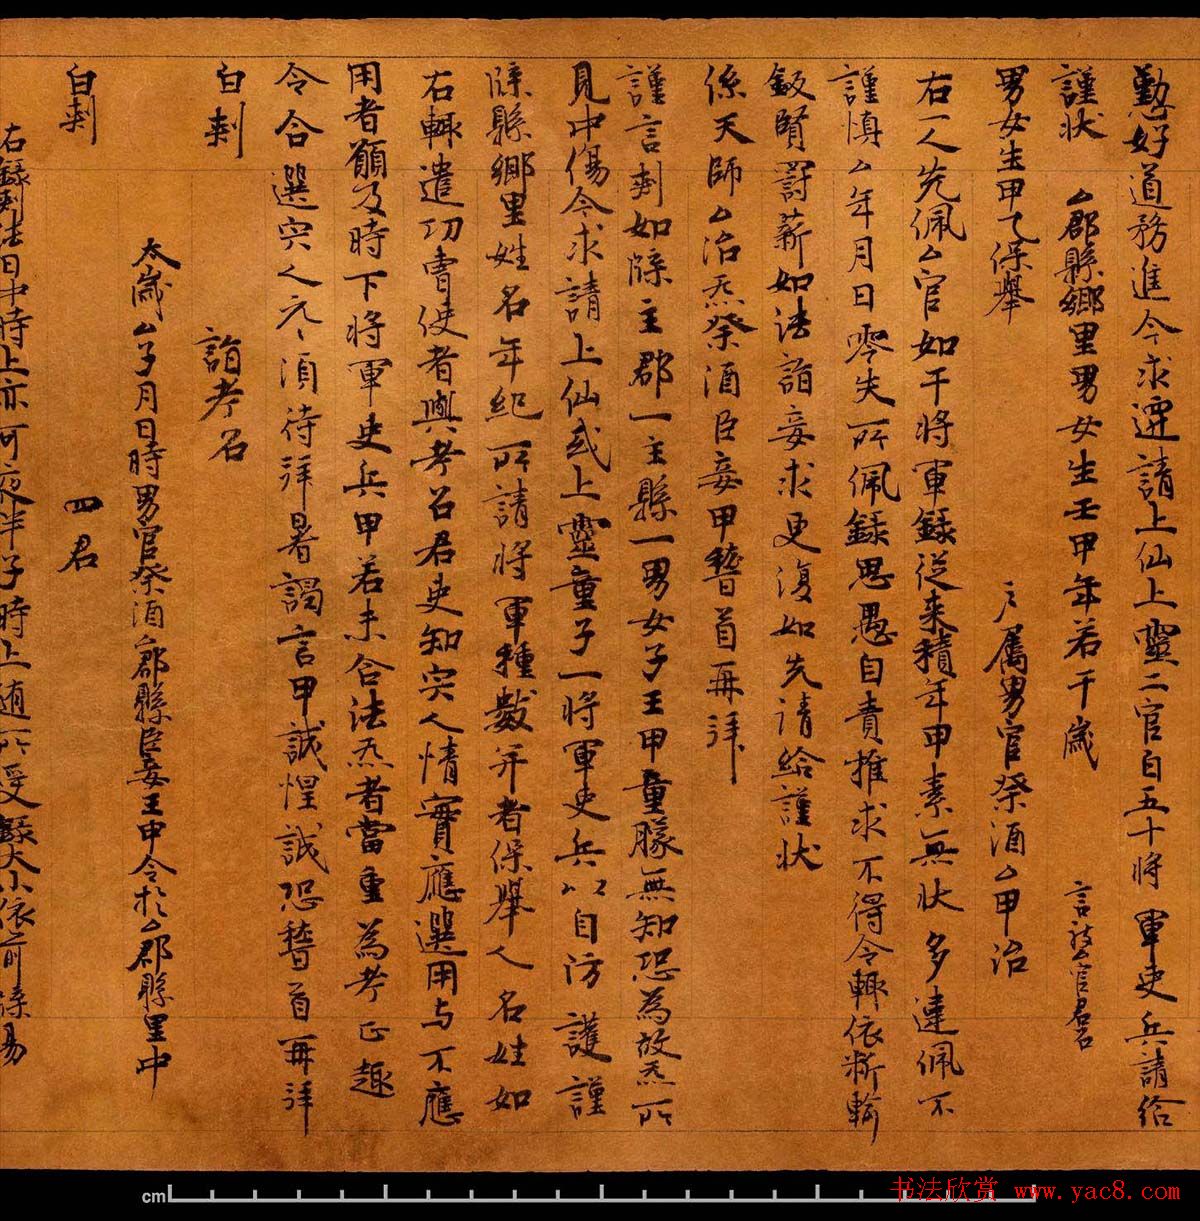 勤好道務進今求遷請上仙上靈二官自五十將軍吏兵請給
謹狀 厶郡縣鄉里男女生王甲年若干歲 言被厶官君召
男女生甲乙保舉 厶屬男官祭酒厶甲治
右一人先佩厶官如干將軍籙從来積年甲素無狀多違佩不
謹慎厶年月日零失所佩籙思愚自責推求不得令輒依断輸
銀贖罰薪如法詣妾求更復如先請給謹狀
係天師厶治炁祭酒臣妾甲稽首再拜
謹言刺如牒主郡一主縣一男女子王甲童朦無知恐為故炁所
見中傷今求請上仙或上靈童子一將軍吏兵以自防護謹
牒縣鄉里姓名年紀所請將軍種數并者保舉人名姓如
右輒遣功曹使者與考召君吏知究人情實應選用与不應
用者願及時下將軍吏兵甲若未合法炁者當重為考正趣
令合選究人 須待拜署謁言甲誠惶誠恐稽首再拜
白刺 詣考召
太歲厶子月日時男官祭酒厶郡縣臣妾王甲令於厶郡縣里中
白刺 四君
右籙刺法日中時上亦可夜半子時上随所受籙大小依前牒